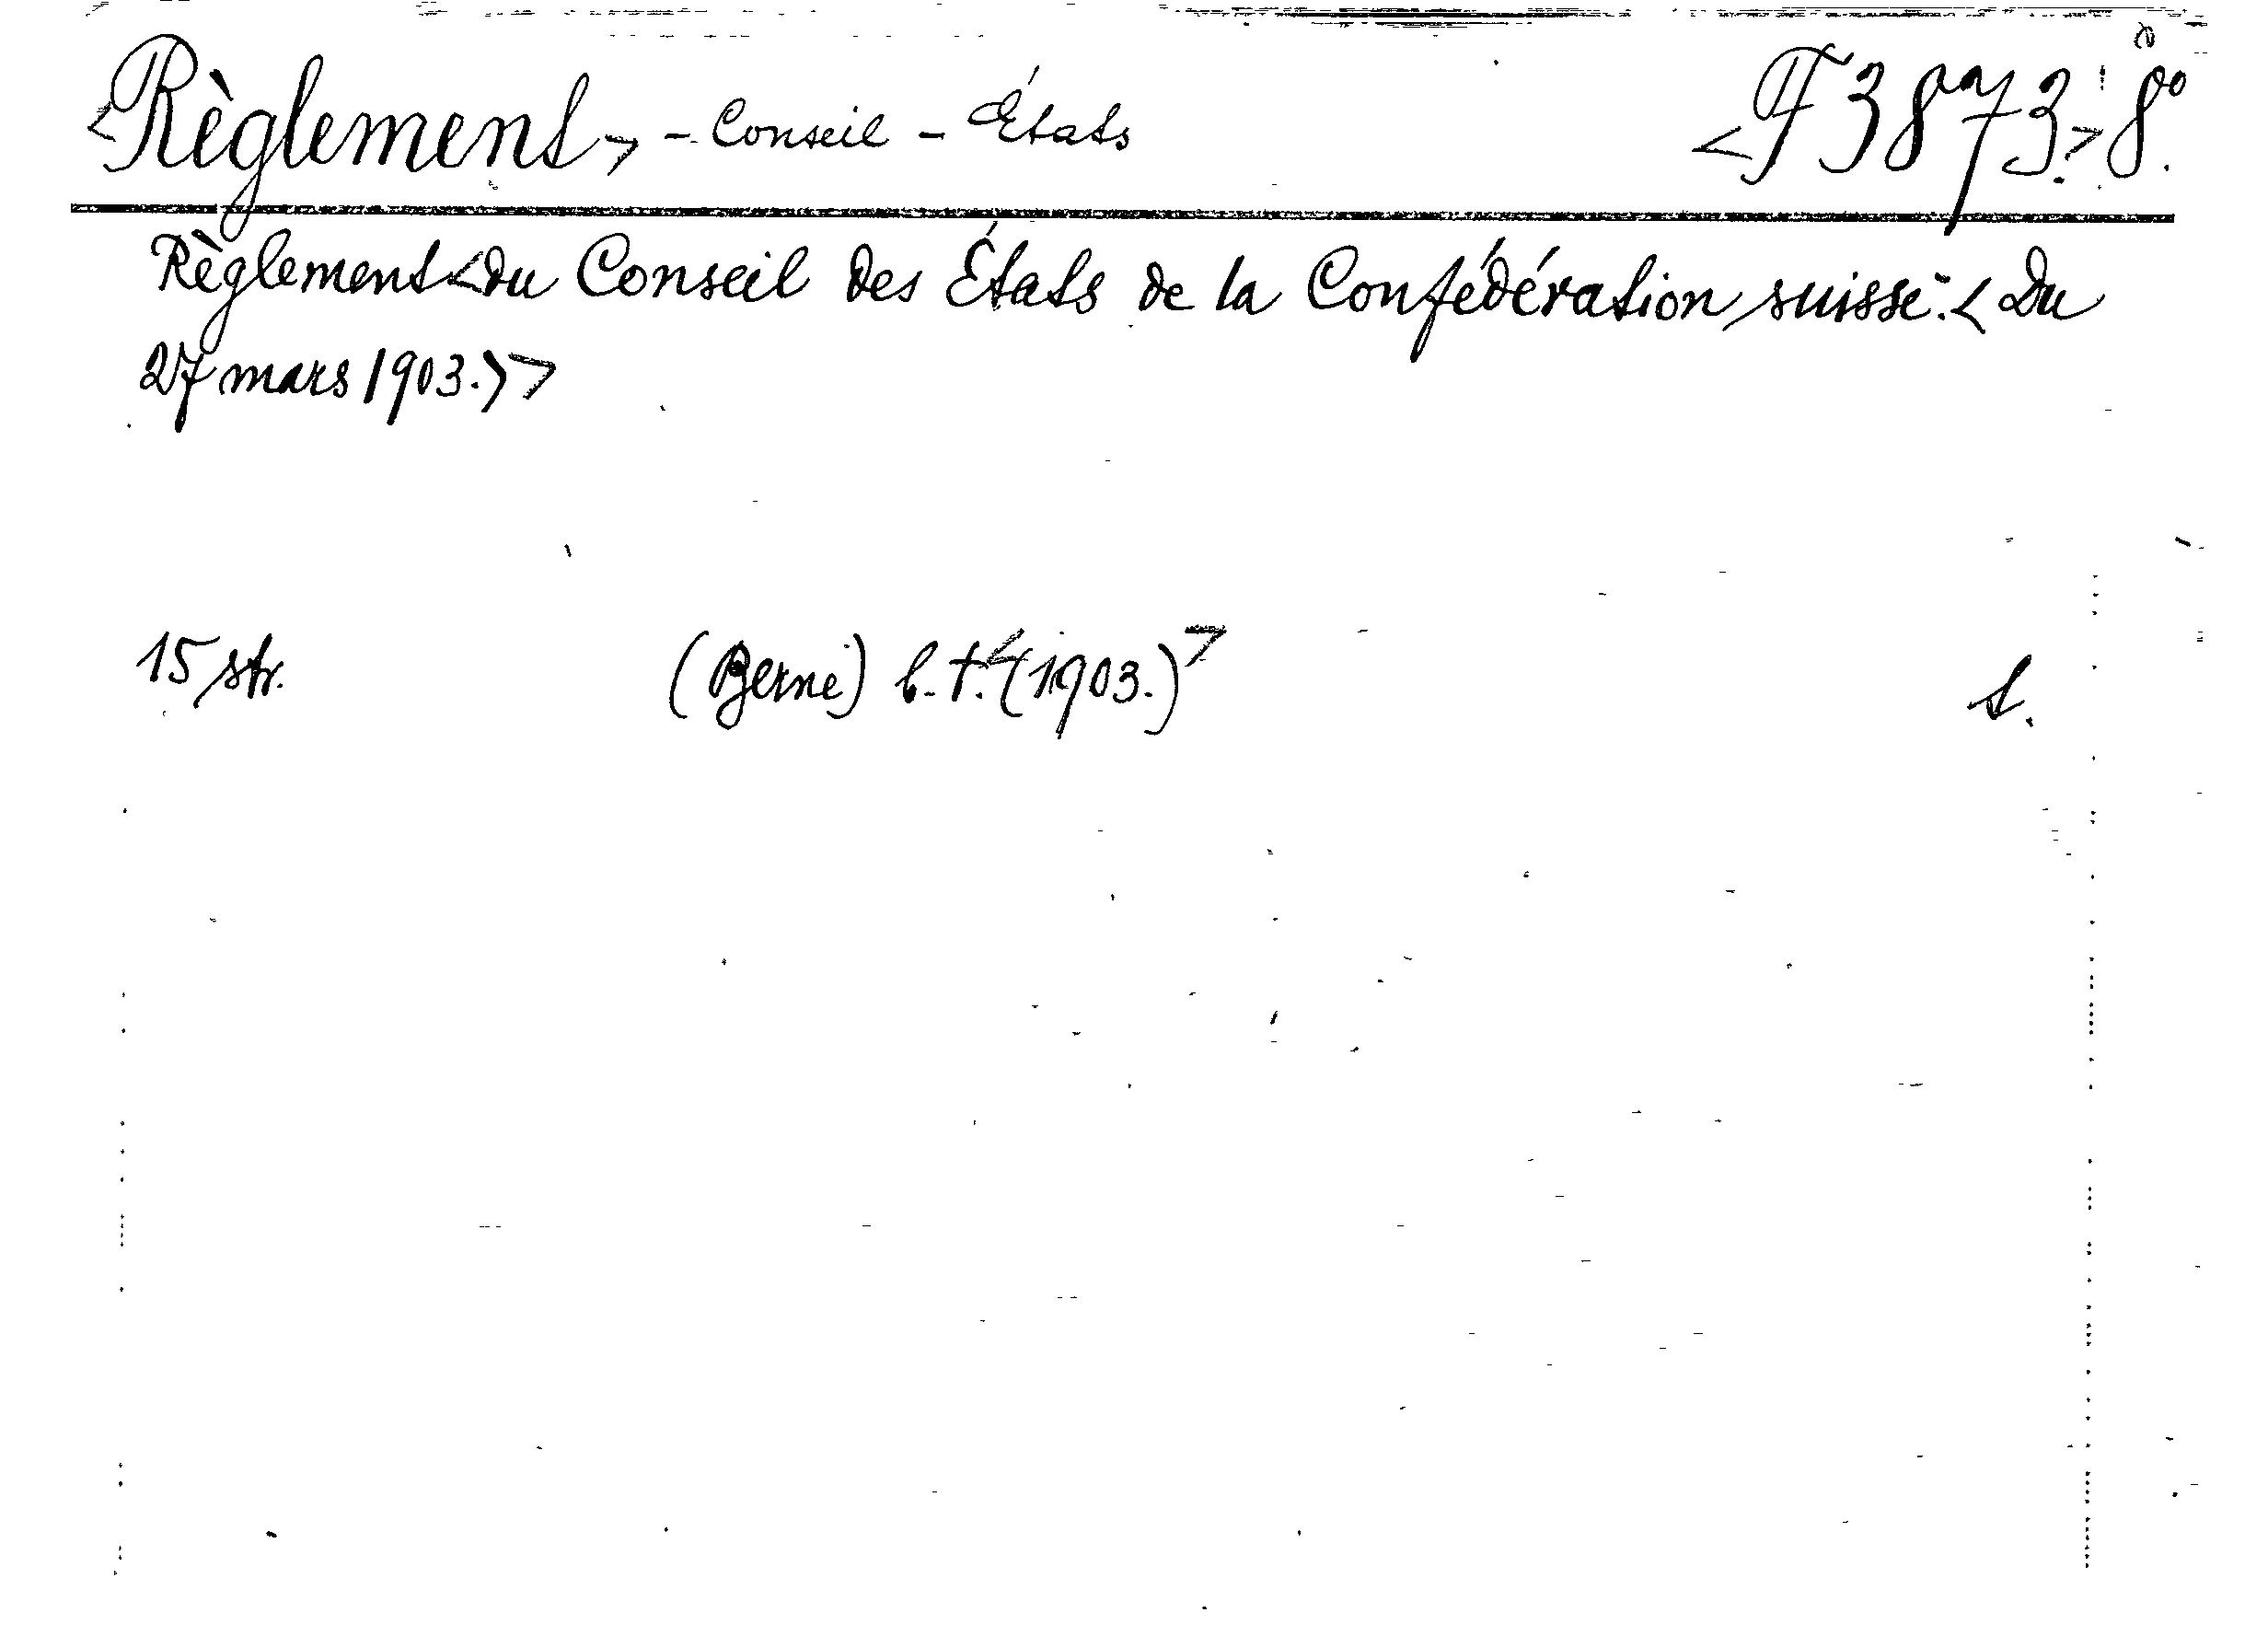 <Règlement> - Conseil - États <F 3873.> 8º.
Règlement <du Conseil des États de la Confédération suisse. <Du
27 mars 1903.)>
15 str. (Berne) b. t. <(1903.)> S.